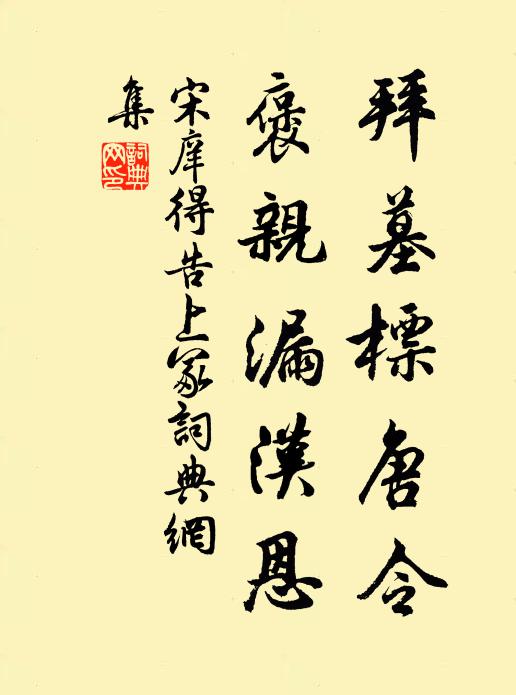 拜墓標唐令
褒親漏漢恩
宋庠得告上冢詞典網
集
詞典網印